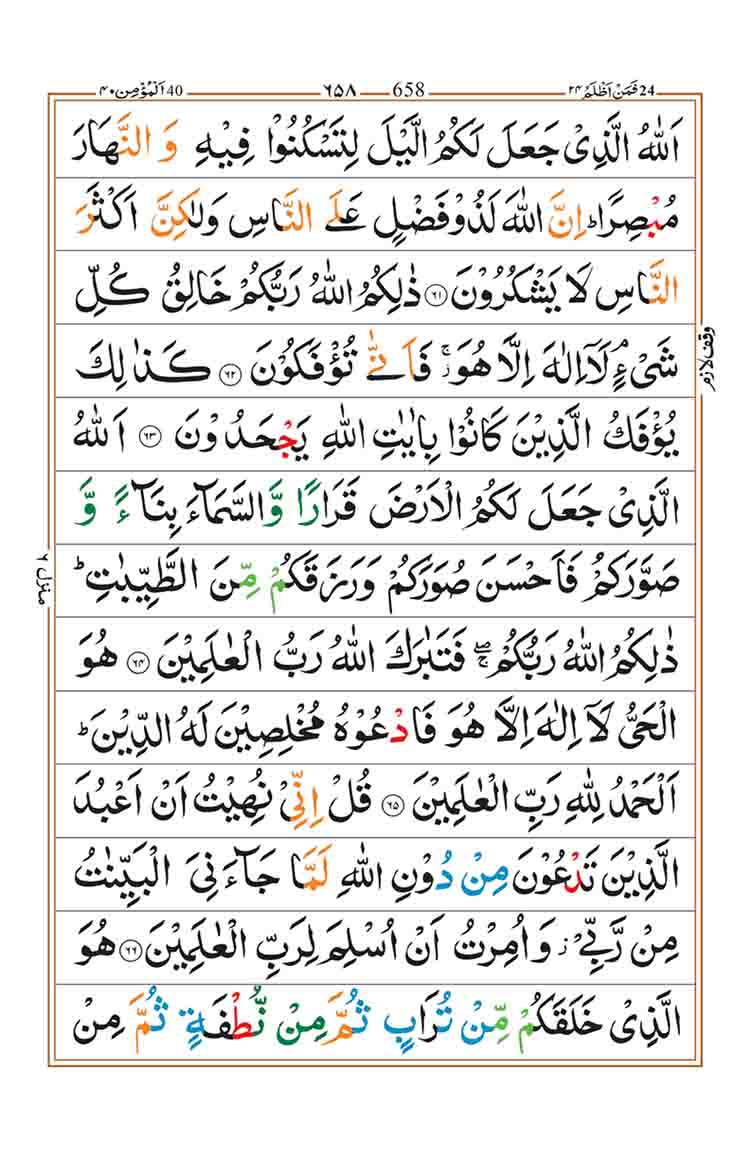 ٢٤ فَمَنْ اَظْلَمُ 24 658 ٦٥٨ 40 اَلْمُؤْمِن ٤٠
اَللّٰهُ الَّذِیْ جَعَلَ لَكُمُ الَّیْلَ لِتَسْكُنُوْا فِیْهِ وَ النَّهَارَ
مُبْصِرًا ؕ اِنَّ اللّٰهَ لَذُوْ فَضْلٍ عَلَی النَّاسِ وَلٰكِنَّ اَكْثَرَ
النَّاسِ لَا یَشْكُرُوْنَ ﴿٦١﴾ ذٰلِكُمُ اللّٰهُ رَبُّكُمْ خَالِقُ كُلِّ
شَیْءٍ ۘ لَاۤ اِلٰهَ اِلَّا هُوَ ۚؗ فَاَنّٰی تُؤْفَكُوْنَ ﴿٦٢﴾ كَذٰلِكَ
وقف لازم
یُؤْفَكُ الَّذِیْنَ كَانُوْا بِاٰیٰتِ اللّٰهِ یَجْحَدُوْنَ ﴿٦٣﴾ اَللّٰهُ
الَّذِیْ جَعَلَ لَكُمُ الْاَرْضَ قَرَارًا وَّالسَّمَآءَ بِنَآءً وَّ
صَوَّرَكُمْ فَاَحْسَنَ صُوَرَكُمْ وَرَزَقَكُمْ مِّنَ الطَّیِّبٰتِ ؕ
منزل ٦
ذٰلِكُمُ اللّٰهُ رَبُّكُمْ ۖۚ فَتَبٰرَكَ اللّٰهُ رَبُّ الْعٰلَمِیْنَ ﴿٦٤﴾ هُوَ
الْحَیُّ لَاۤ اِلٰهَ اِلَّا هُوَ فَادْعُوْهُ مُخْلِصِیْنَ لَهُ الدِّیْنَ ؕ
اَلْحَمْدُ لِلّٰهِ رَبِّ الْعٰلَمِیْنَ ﴿٦٥﴾ قُلْ اِنِّیْ نُهِیْتُ اَنْ اَعْبُدَ
الَّذِیْنَ تَدْعُوْنَ مِنْ دُوْنِ اللّٰهِ لَمَّا جَآءَنِیَ الْبَیِّنٰتُ
مِنْ رَّبِّیْ ؗ وَاُمِرْتُ اَنْ اُسْلِمَ لِرَبِّ الْعٰلَمِیْنَ ﴿٦٦﴾ هُوَ
الَّذِیْ خَلَقَكُمْ مِّنْ تُرَابٍ ثُمَّ مِنْ نُّطْفَةٍ ثُمَّ مِنْ